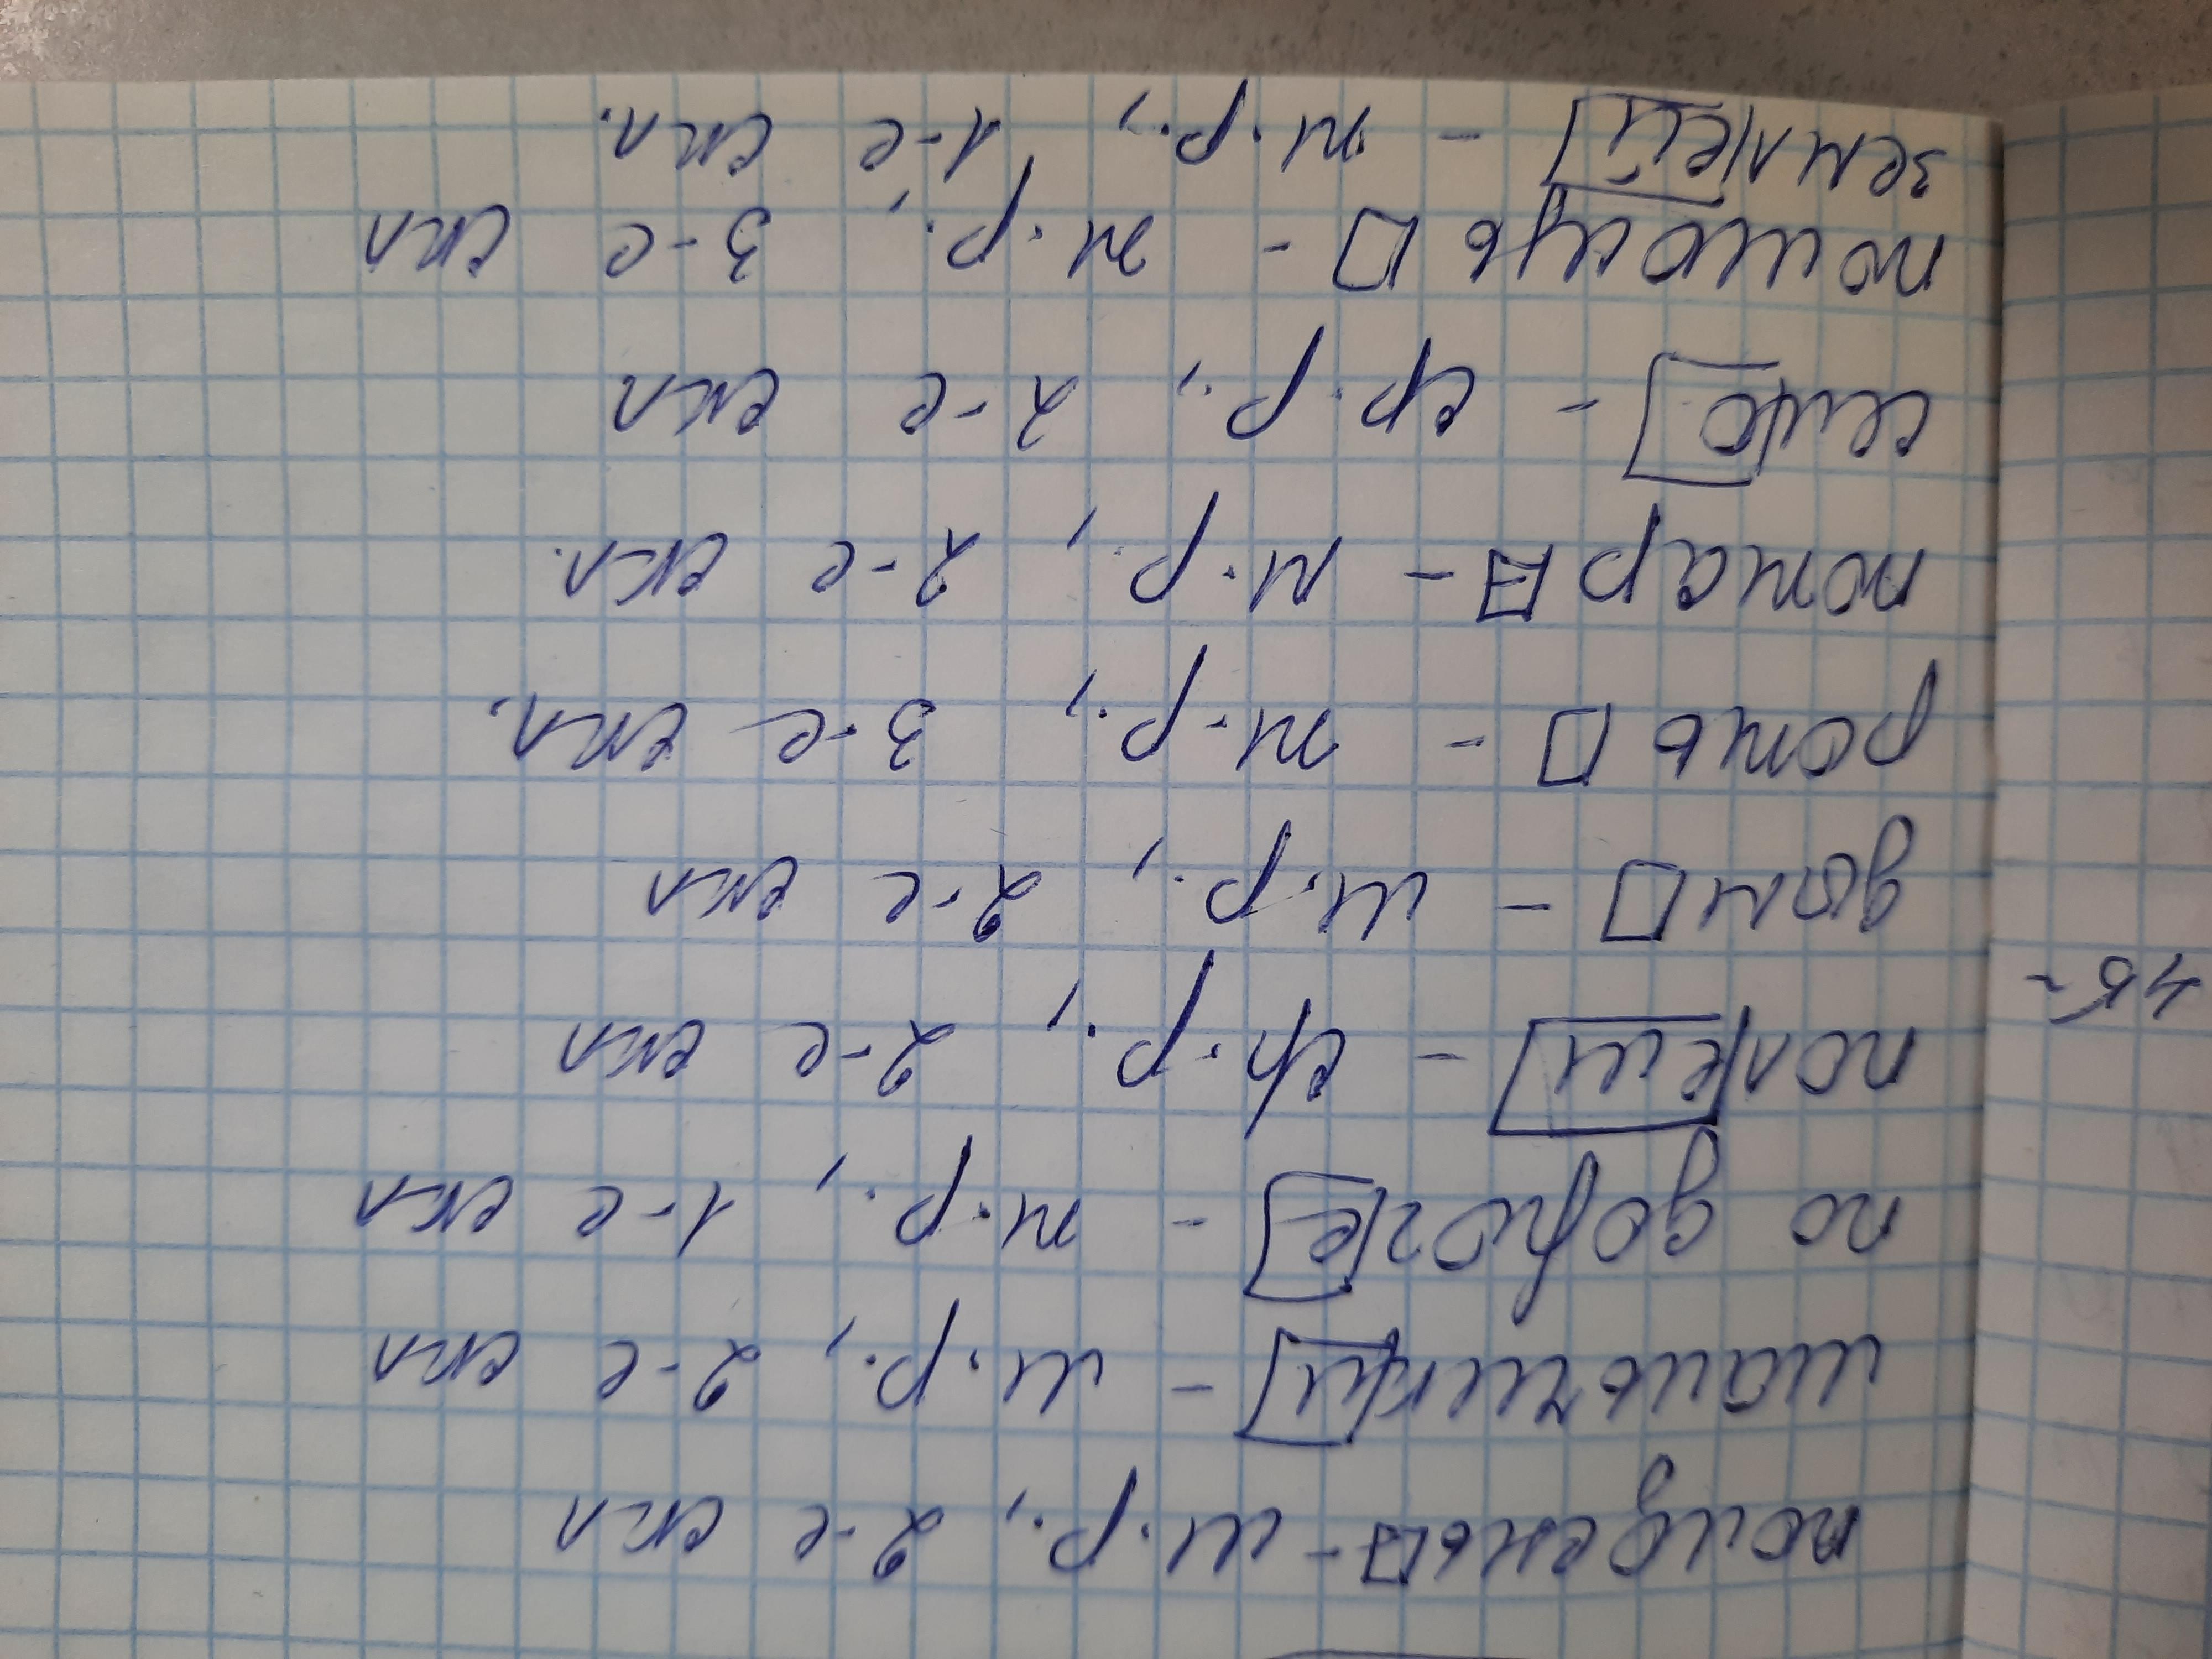 полдень□ - м.р., 2-е скл
мальчик[и] - м.р., 2-е скл
по дорог[е] - ж.р., 1-е скл
пол[ем] - ср.р., 2-е скл
дом□ - м.р., 2-е скл
рожь□ - ж.р., 3-е скл.
пожар□ - м.р., 2-е скл.
сел[о] - ср.р., 2-е скл
помощь□ - ж.р., 3-е скл
земл[ей] - ж.р., 1-е скл.